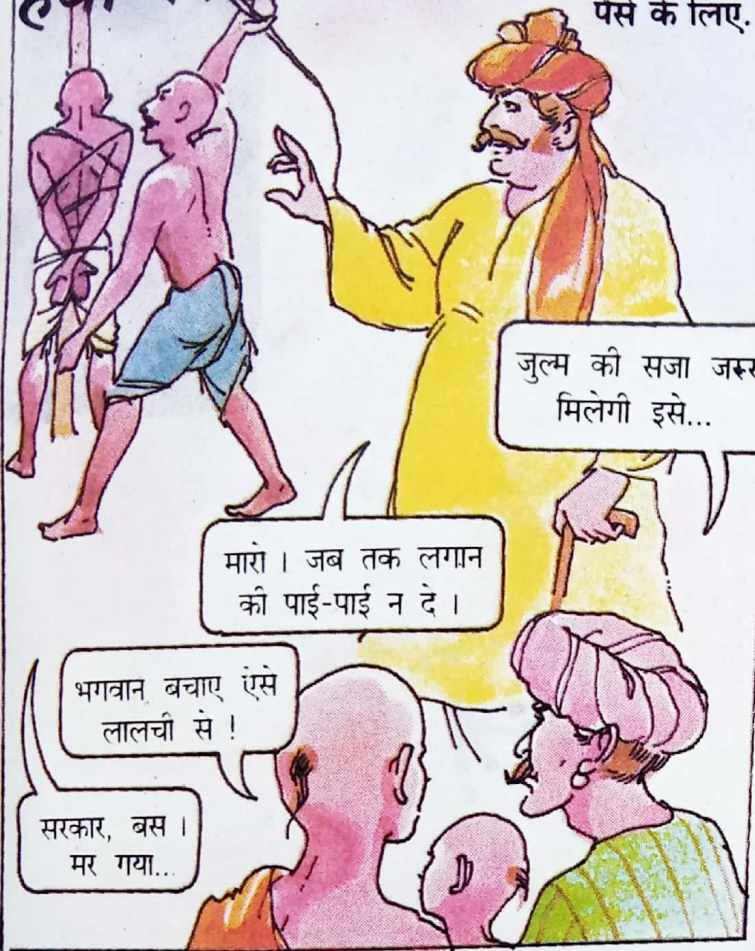 पैसे के लिए.
जुल्म की सजा जरूर
मिलेगी इसे...
मारो । जब तक लगान
की पाई-पाई न दे ।
भगवान बचाए ऐसे
लालची से !
सरकार, बस ।
मर गया...